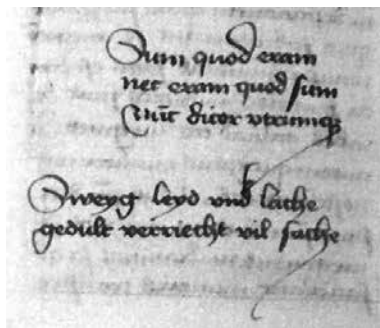 Sum quod eram
nec eram quod sum
Nu̅c dicor utrumqꝫ
Sweyg leyd und lache
gedult verricht vil sache